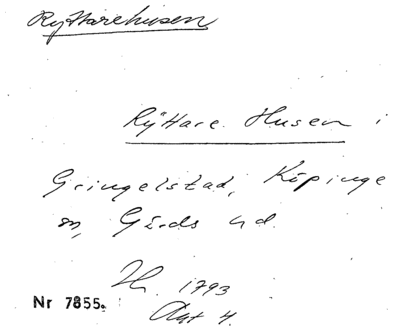 Ryttarehusen
Ryttare Husen i
Gringelstad, Köpinge
sn, Gärds hd.
H. 1793
Akt 4.
Nr 7855.